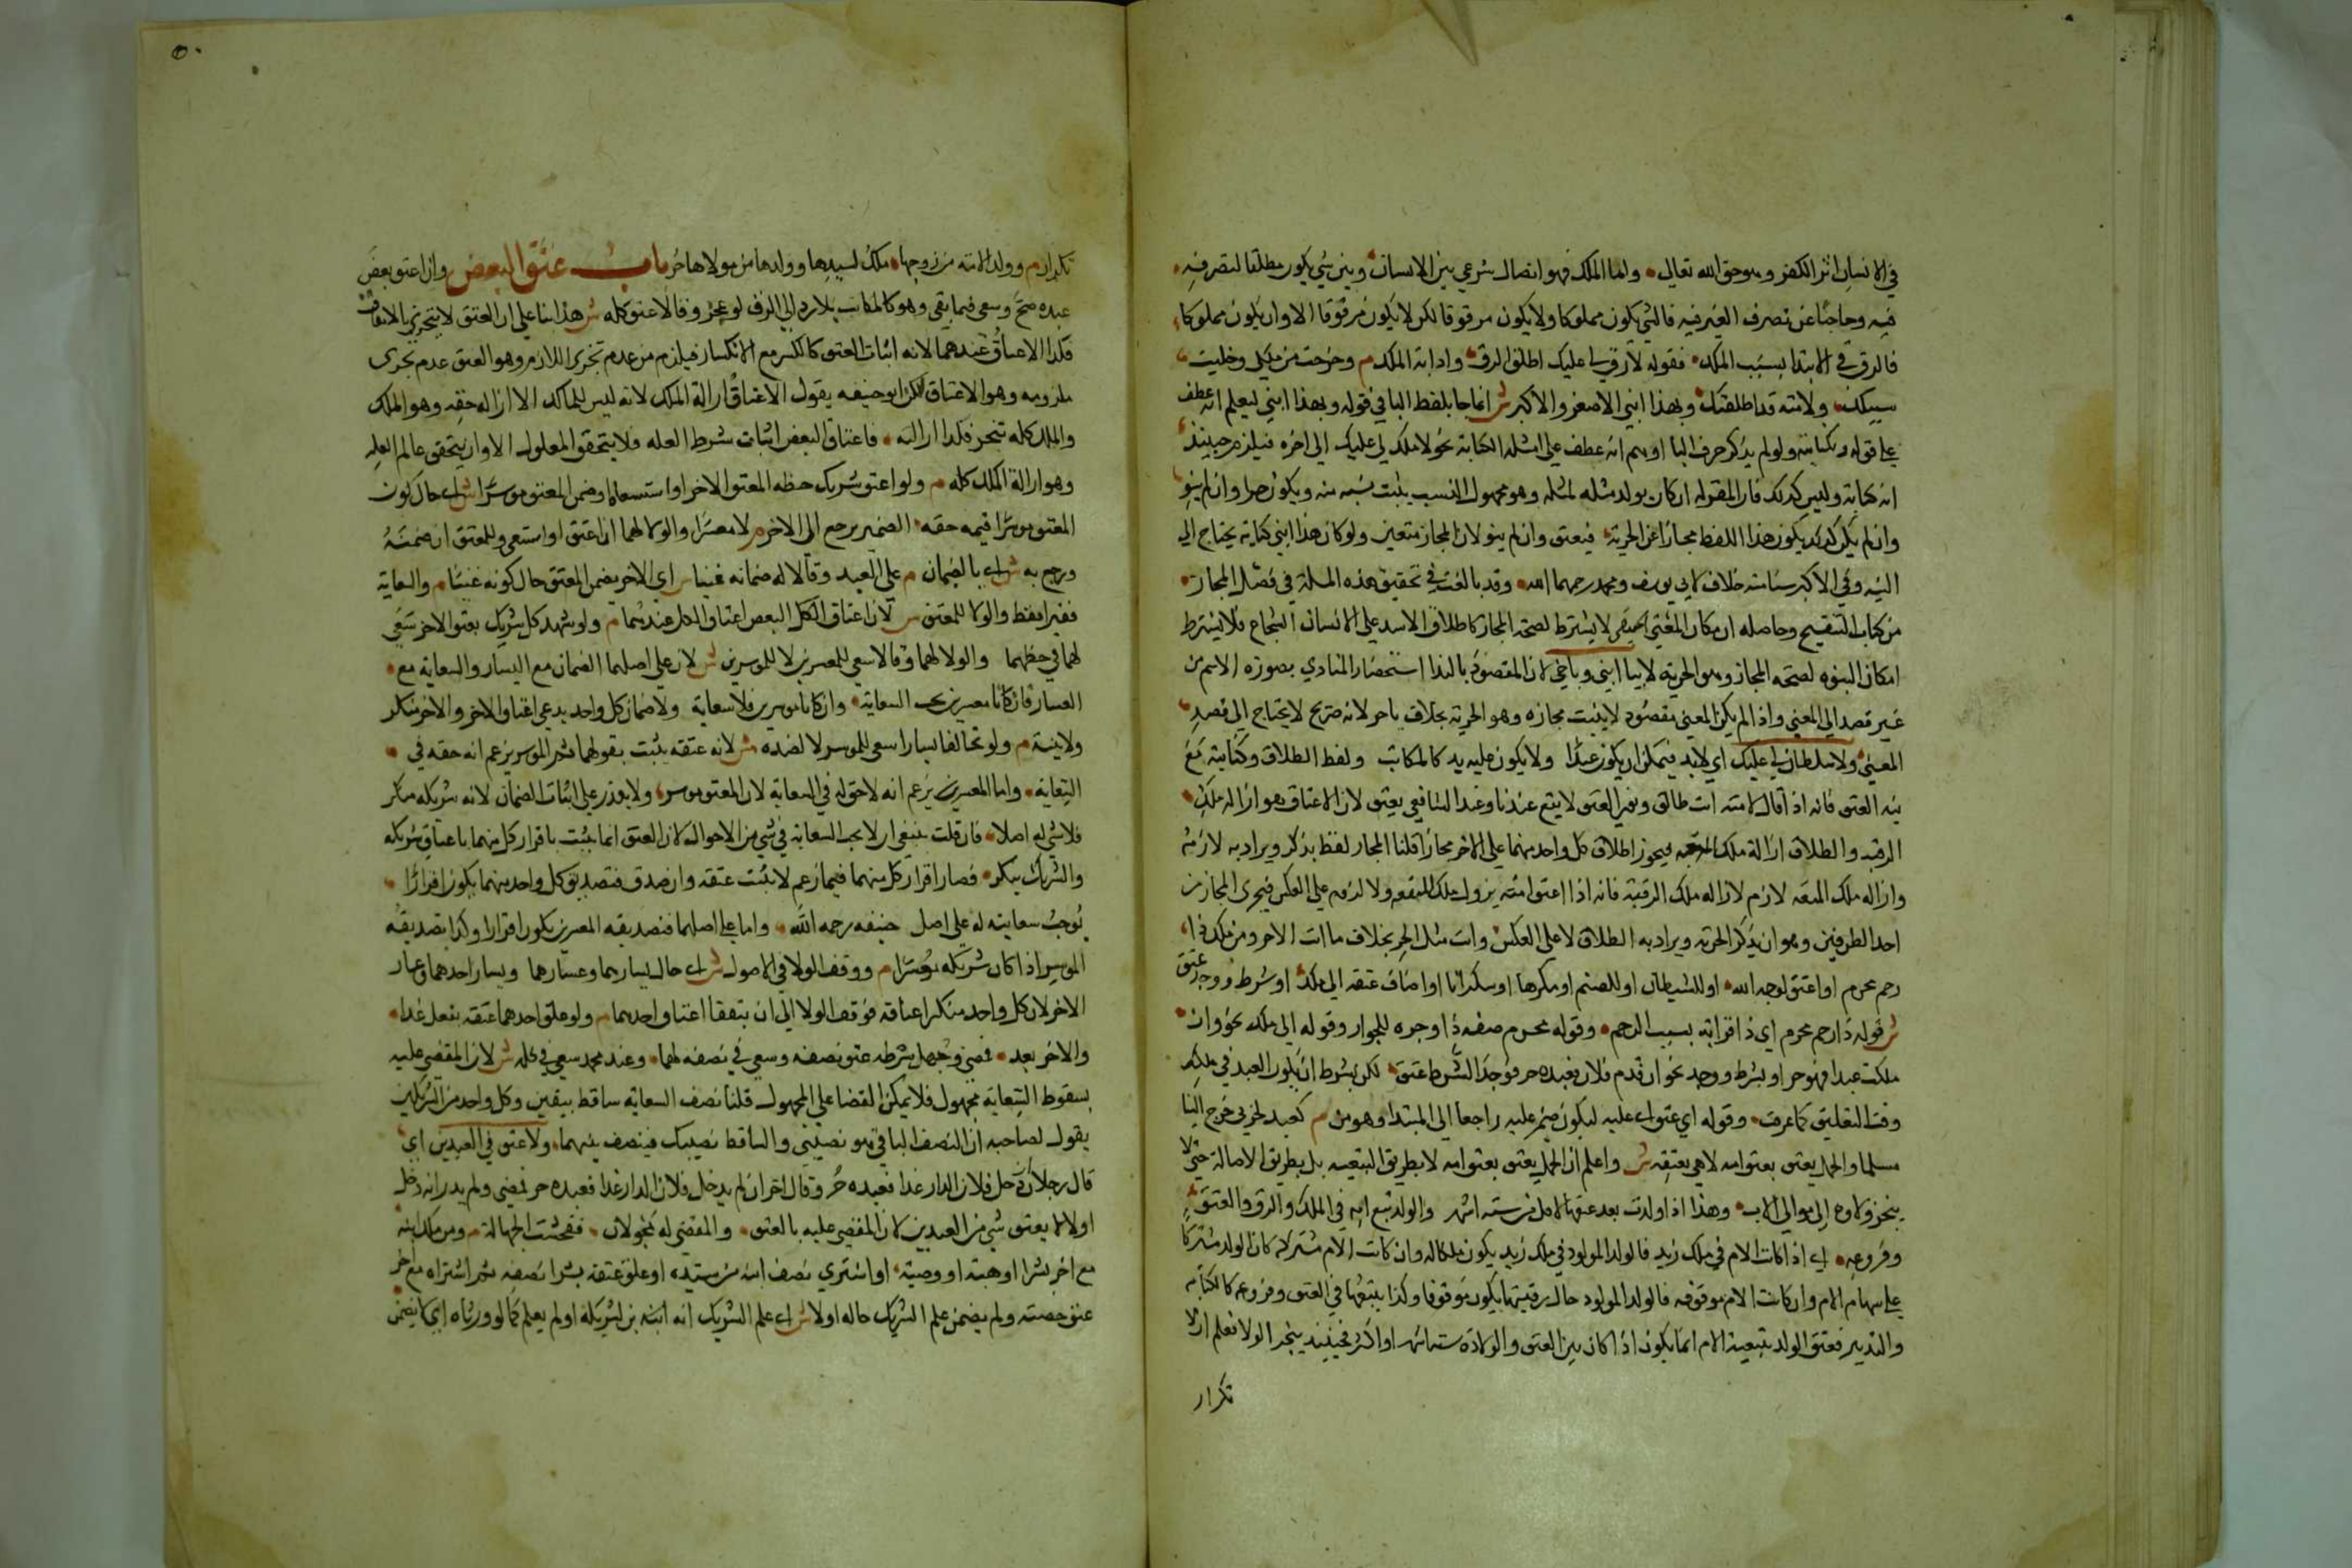 في الانسان اثر الكفر وهو حق الله تعالى واما الملك فهو اتصال شرعي بين الانسان وبين شي يكون مطلقا لتصرفه
فيه وحاجزا عن تصرف الغير فيه فالشي يكون مملوكا ولا يكون مرقوقا لكن لا يكون مرقوقا الا وان يكون مملوكا
فالرق في الابتدا بسبب الملك فقوله لا رق لي عليك اطلاق الرق واداته الملك م وخرجت من ملكي وخليت
سبيلك ولامته قد اطلقتك وبهذا ابني الاصغر والاكبر ش انما جا بلفظ البا في قوله وبهذا ابني ليعلم انه عطف
على قوله وبكنايته ولو لم يذكر حرف البا اوهم انه عطف على امثله الكناية نحو لا ملك لي عليك الى اخره فيلزم حينئذ
انه كناية وليس كذلك فان المقوله ان كان يولد مثله لمثله وهو مجهول النسب يثبت نسبه منه ويكون حرا وان لم ينو
وان لم يكن كذلك يكون هذا اللفظ مجازا عن الحرية فيعتق وان لم ينو لان المجاز متعين ولو كان هذا ابني كناية يحتاج الى
النيه وفي الاكبر سنا منه خلاف لابي يوسف ومحمد رحمهما الله وقد بالغت في تحقيق هذه المسلة في فصل المجاز
من كتاب التنقيح وحاصله ان مكان المعنى الحقيقي لا يشترط لصحة المجاز كاطلاق الاسد على الانسان الشجاع فلا يشترط
امكان البنوه لصحة المجاز وهو الحريه لا بيا ابني ويا اخي لان المقصود بالندا استحضار المنادي بصورة الاسم من
غير قصد الى المعنى واذا لم يكن المعنى مقصود لا يثبت مجازه وهو الحرية بخلاف يا حر لانه صريح لا يحتاج الى قصد
المعنى ولا سلطان لي عليك اي لا يد فيمكن ان يكون عبدا ولا يكون عليه يد كالمكاتب ولفظ الطلاق وكنايته مع
نيه العتق فانه اذا قال لامته انت طالق ونوى العتق لا يتم عندنا وعند الشافعي يعتق لان الاعتاق هو ازالة ملك
الرقبه والطلاق ازالة ملك المتعه فيجوز اطلاق كل واحد منهما على الاخر مجازا قلنا المجاز لفظ يذكر ويراد به لازمه
وازاله ملك المتعه لازم لازاله ملك الرقبة فانه اذا اعتق امته يزول ملك المتعه ولا لزوم على العكس فيجرى المجاز من
احد الطرفين وهو ان يذكر الحريه ويراد به الطلاق لا على العكس وانت مثل الحر بخلاف ما انت الا حر ومن ملك ذا
رحم محرم او اعتق لوجه الله او للشيطان او للصنم او مكرها او سكرانا او اضاف عتقه الى ملك او شرط ووجد عتق
ش قوله ذا رحم محرم اي ذا قرابة بسبب الرحم وقوله محرم صفه ذا وجره للجوار وقوله الى ملك نحو وان
ملكت عبدا فهو حر او بشرط ووجد نحو ان قدم فلان فعبده حر فوجد الشرط عتق لكن بشرط ان يكون العبد في ملكه
وقت التعليق كما عرفت وقوله اي عتق اى عليه ليكون ضمير عليه راجعا الى المبتدا وهو من م كعبد لحربي خرج الينا
مسلما والحمل يعتق بعتق امه لا هي بعتقه ش واعلم ان الحمل يعتق بعتق امه لا بطريق التبعيه بل بطريق الاصالة حتى لا
ينجر ولاوه الى موالي الاب وهذا اذا ولدت بعد عتقها لاقل من ستة اشهر والولد يتبع امه في الملك والرق والعتق
وفروعه اى اذا كانت الام في ملك زيد فالولد المولود في ملك زيد يكون ملكا له وان كانت الام مشتركة كان الولد مشتركا
على سهام الام وان كانت الام موقوفه فالولد المولود حال رقيتها يكون مرقوقا وكذا يتبعها في العتق وفروعه كالكتابه
والتدبير فعتق الولد بتبعية الام انما يكون اذا كان بين العتق والولادة ستة اشهر او اكثر فحينئذ ينجر الولا فعلم ان لا
تكرار
تكرار م وولد الامة من زوجها ملك لسيدها وولدها من مولاها حر باب عتق البعض وان اعتق بعض
عبده صح وسعى فيما بقى وهو كالمكاتب بلا رد الى الرق لو عجز وقالا عتق كله ش هذا بنا على ان العتق لا يتجزى بالاتفاق
فكذا الاعتاق عندهما لانه اثبات العتق كالكسر مع الانكسار فيلزم من عدم تجزى اللازم وهو العتق عدم تجزى
ملزومه وهو الاعتاق لكن ابو حنيفه يقول الاعتاق ازالة الملك لانه ليس للمالك الا ازاله حقه وهو الملك
والملك كله تتجز فكذا ازالته فاعتاق البعض اثبات شرط العله فلا يتحقق المعلول الا وان يتحقق عالم العله
وهو ازالة الملك كله م ولو اعتق شريك حظه اعتق الاخر او استسعاه او ضمن المعتق موسرا ش اى حال كون
المعتق موسرا قيمه حقه الضمير يرجع الى الاخر م لا معسرا والولا لهما ان اعتق او استسعى وللمعتق ان ضمنه
ورجع به ش اى بالضمان م على العبد وقالا له ضمانه غنيا ش اي للاخر يضمن المعتق حال كونه غنيا م والسعاية
فقيرا فقط والولا للمعتق ش لان اعتاق الكل البعض اعتاق الكل عندهما م ولو شهد كل شريك بعتق الاخر سعى
لهما في حظهما والولا لهما وقالا سعى للمعسرين لا للموسرين ش لان على اصلهما الضمان مع اليسار والسعاية مع
العسار فان كانا معسرين يجب السعاية وان كانا موسرين فلا سعاية ولا ضمان كل واحد يدعي اعتاق الاخر والاخر منكر
ولا بينة م ولو تخالفا يسارا سعى للموسر لا لضده ش لانه عتقه يثبت بقولهما ثم الموسر يزعم انه حقه في
السعاية واما المعسر يزعم انه لا حق له في السعاية لان المعتق موسر ولا يقدر على اثبات الضمان لانه شريكه منكر
فلا شي له اصلا فان قلت ينبغي ان لا يجب السعاية في شي من الاحوال لان العتق انما يثبت باقرار كل منهما باعتاق شريكه
والشريك ينكر فصار اقرار كل منهما فيما زعم لا يثبت عتقه وان صدق فتصديق كل واحد منهما يكون اقرارا
بوجب سعايته له على اصل حنيفه رحمه الله واما على اصلهما فتصديقه المعسرين يكون اقرارا وكذا تصديقه
الموسر اذا كان شريكه معسرا م ووقف الولا في الاصول ش اى حال يسارهما وعسارهما ويسار احدهما وعسار
الاخر لان كل واحد منكر اعتاقه فوقف الولا الى ان يتفقا اعتاق احدهما م ولو علق احدهما عتقه بفعل غدا
والاخر بعد فمضى وجهل شرطه عتق نصفه وسعى في نصفه لهما وعند محمد سعى في كله ش لان المقضي عليه
بسقوط السعاية مجهول فلا يمكن القضا على المجهول قلنا نصف السعاية ساقط بيقين وكل واحد من الشريكين
يقول لصاحبه ان النصف الباقي هو نصيبي والساقط نصيبك فينصف بينهما ولا عتق في العبدين اي
قال رجلان دخل فلان الدار غدا فعبده حر وقال اخر ان لم يدخل فلان الدار غدا فعبده حر فمضى ولم يدر انه دخل
اولا لا يعتق شي من العبدين لان المقضى عليه بالعتق والمقضى له مجهولان ففحشت الجهالة م ومن ملك ابنه
مع اخر بشرا او هبة او وصية او اشترى نصف ابنه من سيده او علق عتقه بشرا نصفه ثم اشتراه مع اخر
عتق حصته ولم يضمن علم الشريك حاله اولا ش اى علم الشريك انه ابنه بن لشريكه او لم يعلم كما لو ورثاه اي لا يضمن